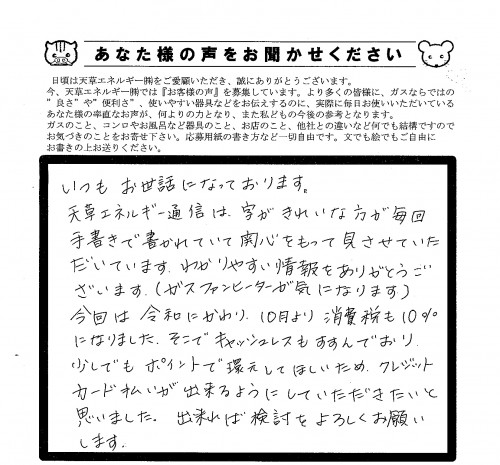 あなた様の声をお聞かせください
日頃は天草エネルギー㈱をご愛顧いただき、誠にありがとうございます。
今、天草エネルギー㈱では『お客様の声』を募集しています。より多くの皆様に、ガスならではの
"良さ"や"便利さ"、使いやすい器具などをお伝えするのに、実際に毎日お使いいただいている
あなた様の率直なお声が、何よりの力となり、また私どもの今後の参考となります。
ガスのこと、コンロやお風呂など器具のこと、お店のこと、他社との違いなど何でも結構ですので
お気づきのことをお寄せ下さい。応募用紙の書き方など一切自由です。文でも絵でもご自由に
お書きの上お送りください。
いつも お世話になっております。
天草エネルギー通信は、字がきれいな方が毎回
手書きで書かれていて関心をもって見させていた
だいています。わかりやすい情報をありがとうご
ざいます。(ガスファンヒーターが気になります)
今回は 令和にかわり、10月より 消費税も10%
になりました。そこで キャッシュレスもすすんでおり、
少しでも ポイントで還元してほしいため、クレジット
カード払いが出来るようにしていただきたいと
思いました。 出来れば検討をよろしくお願い
します。